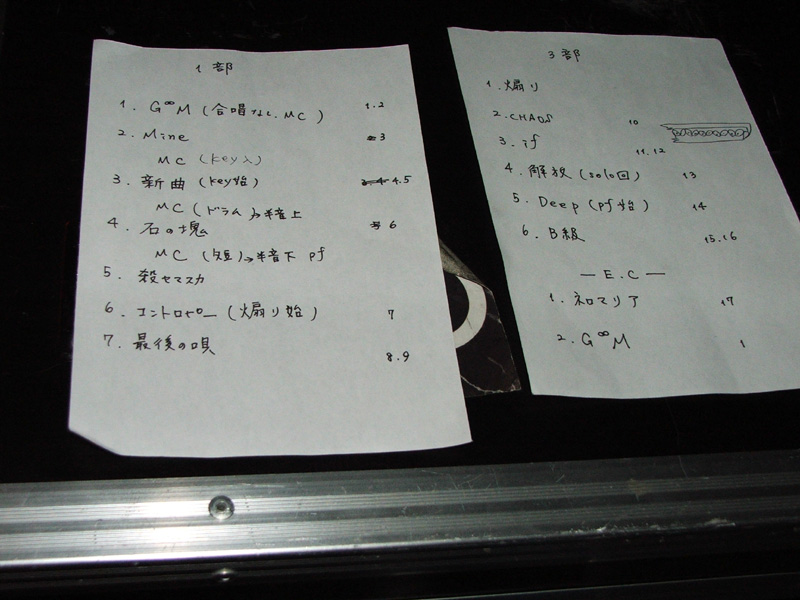 1部
1. G∞M (合唱なし、MC) 1.2
2. Mine 3
MC (key入)
3. 新曲 (key始) 4.5
MC (ドラム)→半音上
4. 石の塊 6
MC (短)→半音下 pf
5. 殺セマスカ
6. エントロピー (煽り始) 7
7. 最後の唄 8.9
3部
1. 煽り
2. CHAOS 10
3. if 11.12
4. 解放 (solo回) 13
5. Deep (pf始) 14
6. B級 15.16
— E.C —
1. マリア 17
2. G∞M 1